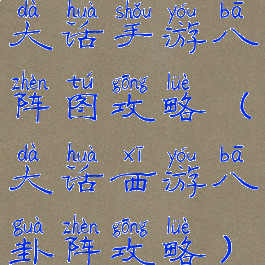 dà huà shǒu yóu bā
大话手游八
zhèn tú gōng lüè
阵图攻略（
dà huà xī yóu bā
大话西游八
guà zhèn gōng lüè
卦阵攻略）